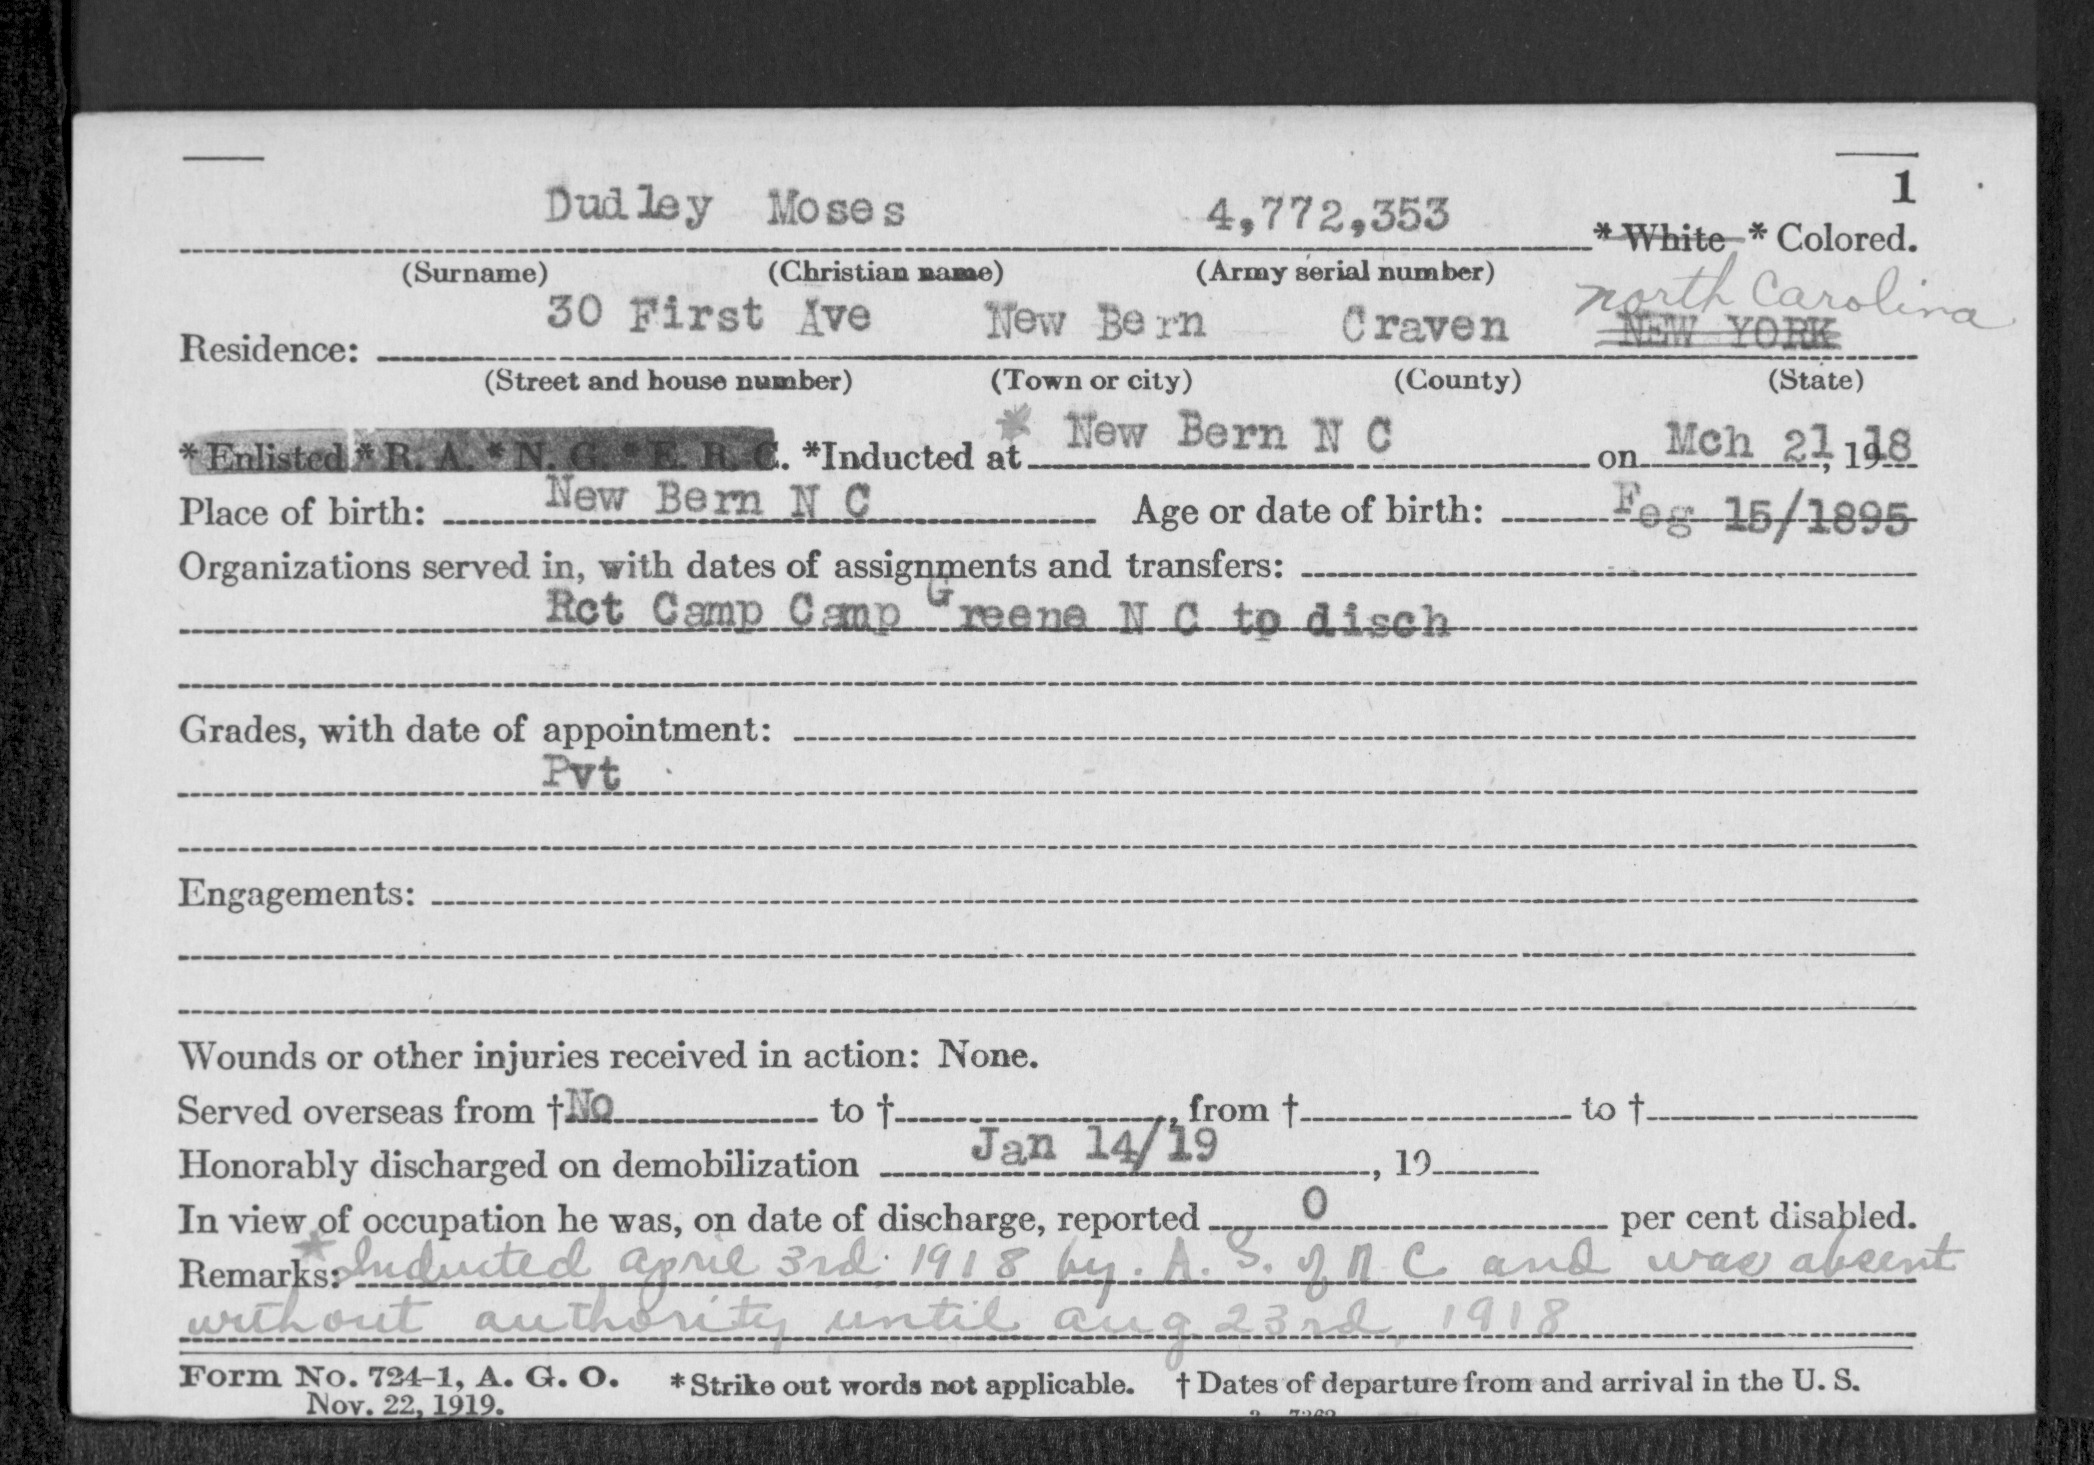 1
Dudley Moses 4,772,353 * White * Colored.
(Surname) (Christian name) (Army serial number)
North Carolina
30 First Ave New Bern Craven NEW YORK
Residence:
(Street and house number) (Town or city) (County) (State)
* Enlisted * R. A. * N. G. * E. R. C. *Inducted at * New Bern N C on Mch 21, 1918
Place of birth: New Bern N C Age or date of birth: Feg 15/1895
Organizations served in, with dates of assignments and transfers:
Rct Camp Camp Greene N C to disch
Grades, with date of appointment:
Pvt
Engagements:
Wounds or other injuries received in action: None.
Served overseas from † No to † , from † to †
Honorably discharged on demobilization Jan 14/19 , 19
In view of occupation he was, on date of discharge, reported 0 per cent disabled.
Remarks: * Inducted April 3rd. 1918 by. A. G. of N C and was absent
without authority until Aug 23rd, 1918
Form No. 724-1, A. G. O. * Strike out words not applicable. † Dates of departure from and arrival in the U. S.
Nov. 22, 1919.